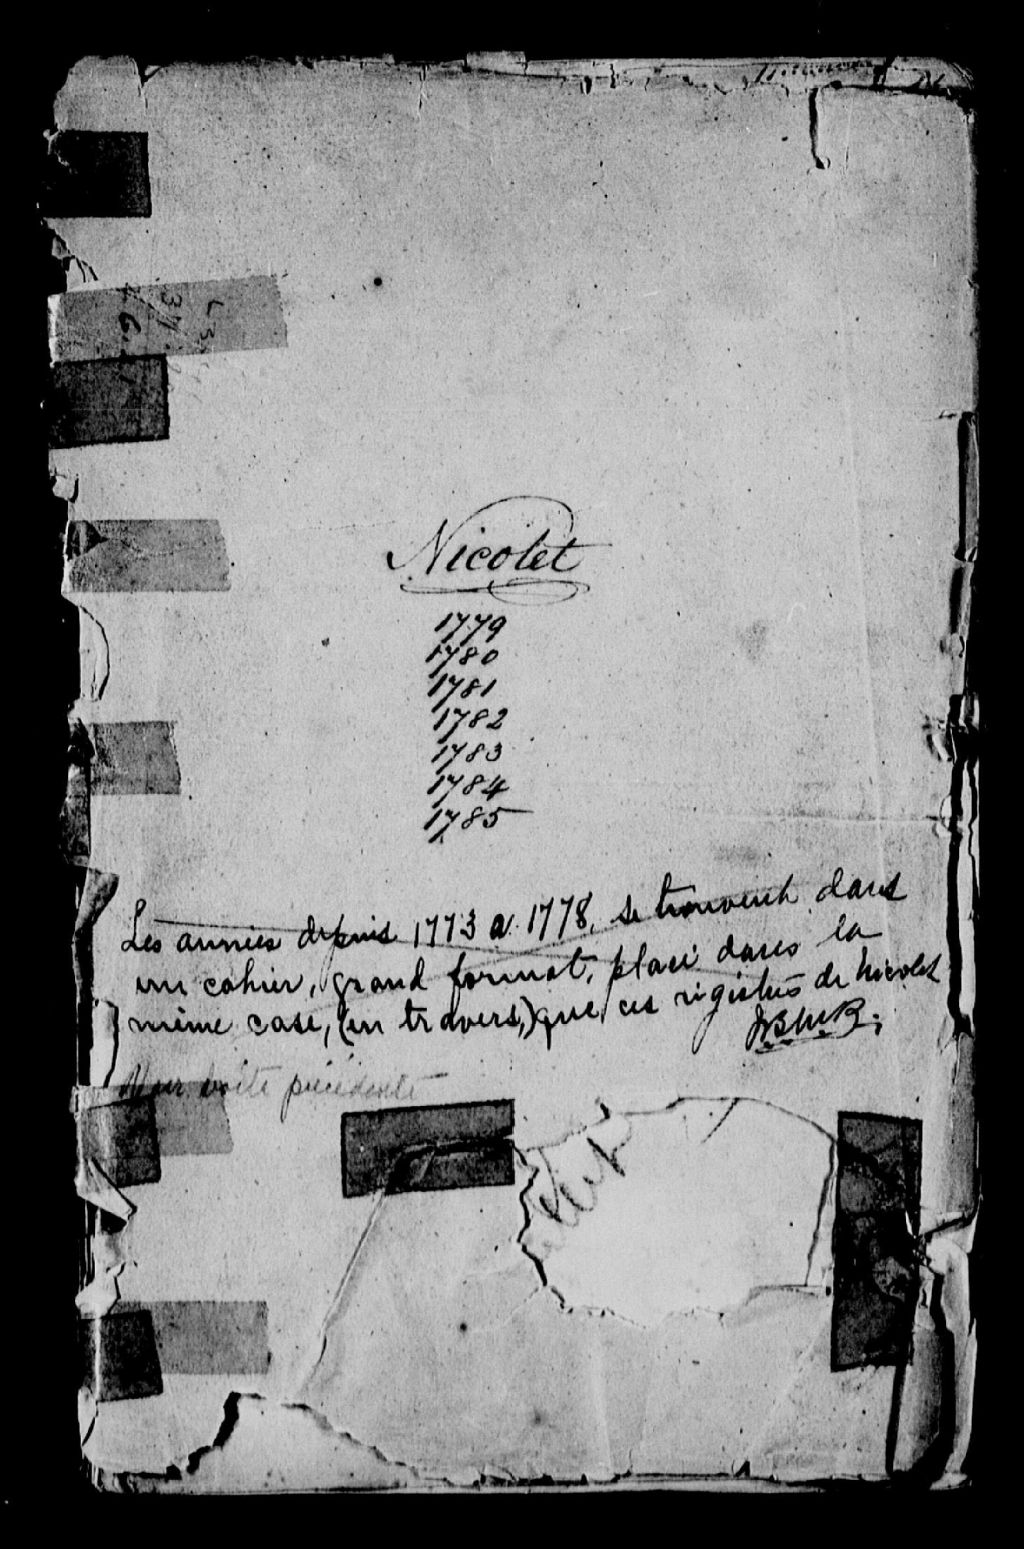 Nicolet
1779
1780
1781
1782
1783
1784
1785
Les années depuis 1773 a 1778, se trouvent dans
un cahier, grand format, placé dans la
même case, (en travers,) que ces registres de Nicolet
boîte précédente